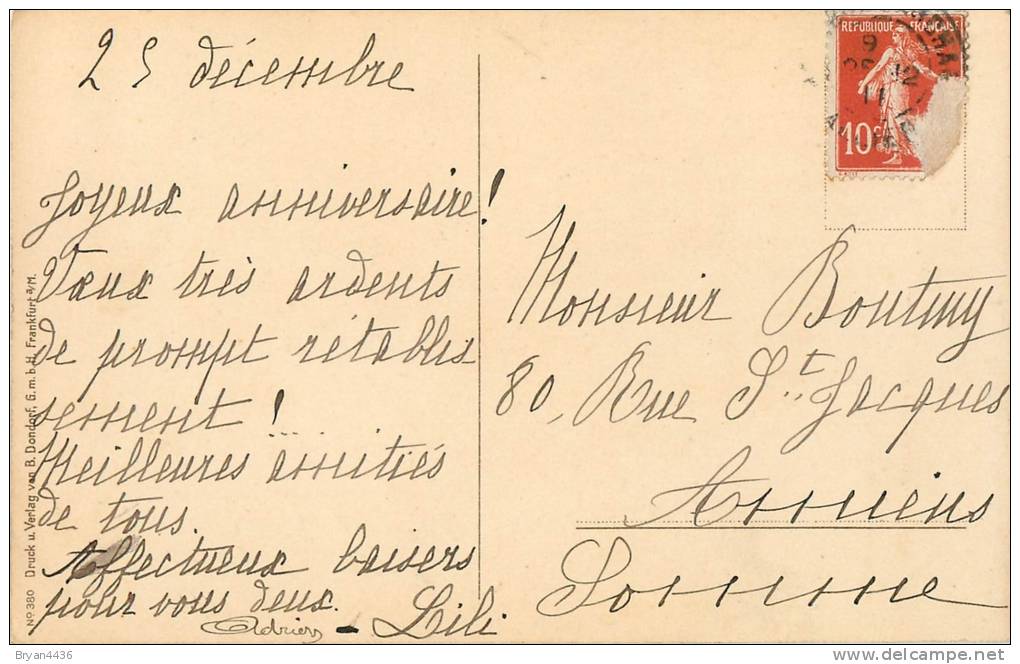 25 décembre
Joyeux anniversaire !
Vœux très ardents
de prompt rétablis-
sement !...
Meilleures amitiés
de tous.
Affectueux baisers
pour vous deux.
Adrien - Lili
RÉPUBLIQUE FRANÇAISE
10c
Monsieur Boutmy
80, Rue St. Jacques
Amiens
Somme
No 380 Druck u. Verlag von B. Dondorf, G.m.b.H. Frankfurt a/M.
Bryan4436
delcampe.net